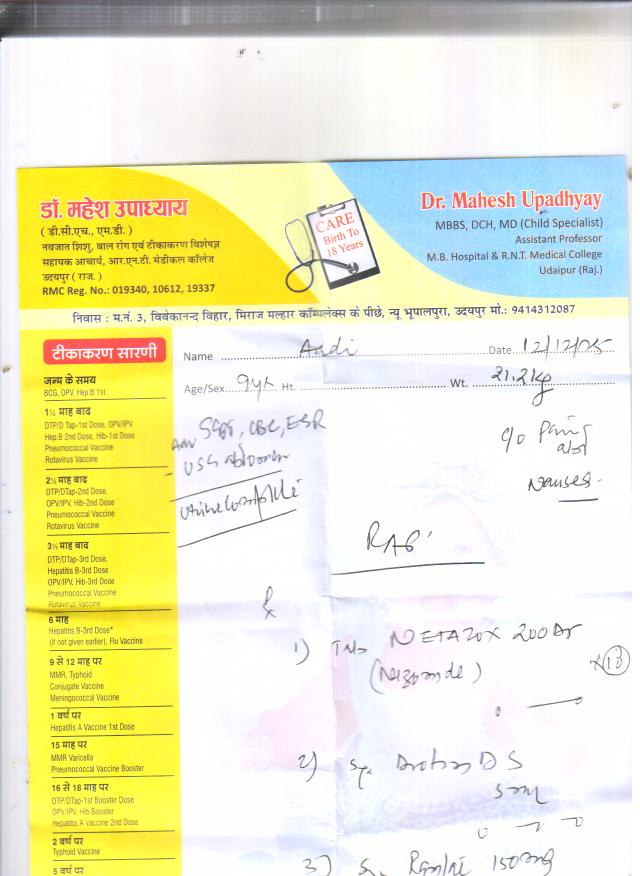 डॉ. महेश उपाध्याय
( डी.सी.एच., एम.डी. )
नवजात शिशु, बाल रोग एवं टीकाकरण विशेषज्ञ
सहायक आचार्य, आर.एन.टी. मेडीकल कॉलेज
उदयपुर ( राज. )
RMC Reg. No.: 019340, 10612, 19337
CARE
Birth To
18 Years
Dr. Mahesh Upadhyay
MBBS, DCH, MD (Child Specialist)
Assistant Professor
M.B. Hospital & R.N.T. Medical College
Udaipur (Raj.)
निवास : म.नं. 3, विवेकानन्द विहार, मिराज मल्हार कॉम्पलेक्स के पीछे, न्यू भूपालपुरा, उदयपुर मो.: 9414312087
Name Aadi Date 12/12/25
Age/Sex 9yr Ht. Wt. 21.2kg
टीकाकरण सारणी
जन्म के समय
BCG, OPV, Hep.B 1st
1½ माह बाद
DTP/D Tap-1st Dose, OPV/IPV
Hep.B 2nd Dose, Hib-1st Dose
Pneumococcal Vaccine
Rotavirus Vaccine
2½ माह बाद
DTP/DTap-2nd Dose,
OPV/IPV, Hib-2nd Dose
Pneumococcal Vaccine
Rotavirus Vaccine
3½ माह बाद
DTP/DTap-3rd Dose,
Hepatitis B-3rd Dose
OPV/IPV, Hib-3rd Dose
Pneumococcal Vaccine
Rotavirus Vaccine
6 माह
Hepatitis B-3rd Dose*
(if not given earlier), Flu Vaccine
9 से 12 माह पर
MMR, Typhoid
Conjugate Vaccine
Meningococcal Vaccine
1 वर्ष पर
Hepatitis A Vaccine 1st Dose
15 माह पर
MMR Varicella
Pneumococcal Vaccine Booster
16 से 18 माह पर
DTP/DTap-1st Booster Dose
OPV/IPV, Hib Booster
Hepatitis A Vaccine 2nd Dose
2 वर्ष पर
Typhoid Vaccine
5 वर्ष पर
Adv CBC, ESR
USG abdomen
Urine Complete
c/o Pain
abd
Nausea
RAP
Rx
1) Tab NETAZOX 200
x 10
2) Syp. DS
5ml
3) 150mg